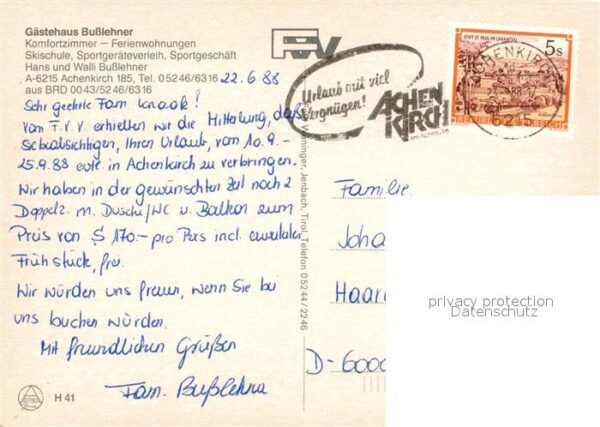 Gästehaus Bußlehner
Komfortzimmer — Ferienwohnungen
Skischule, Sportgeräteverleih, Sportgeschäft
Hans und Walli Bußlehner
A-6215 Achenkirch 185, Tel. 05246/6316
aus BRD 0043/5246/6316
22.6 88
Sehr geehrte Fam Knaak!
Vom T.V.V. erhielten wir die Mitteilung, daß
Sie beabsichtigen, Ihren Urlaub, vom 10.9.-
25.9.88 in Achenkirch zu verbringen.
Wir haben in der gewünschten Zeit noch 2
Doppelz. m. Dusche/WC u. Balkon zum
Preis von S 170.- pro Pers incl.
Frühstück, frei.
Wir würden uns freuen, wenn Sie bei
uns buchen würden.
Mit freundlichen Grüßen
Fam. Bußlehner
H 41
Jenbach, Tirol, Telefon 05244/2246
Urlaub mit viel
Vergnügen!
ACHEN
KIRCH
am Achensee
STIFT ST. PAUL IM LAVANTTAL
5s
REPUBLIK ÖSTERREICH
ACHENKIRCH
6215
Familie
Joha
Haar
D-6000
privacy protection
Datenschutz